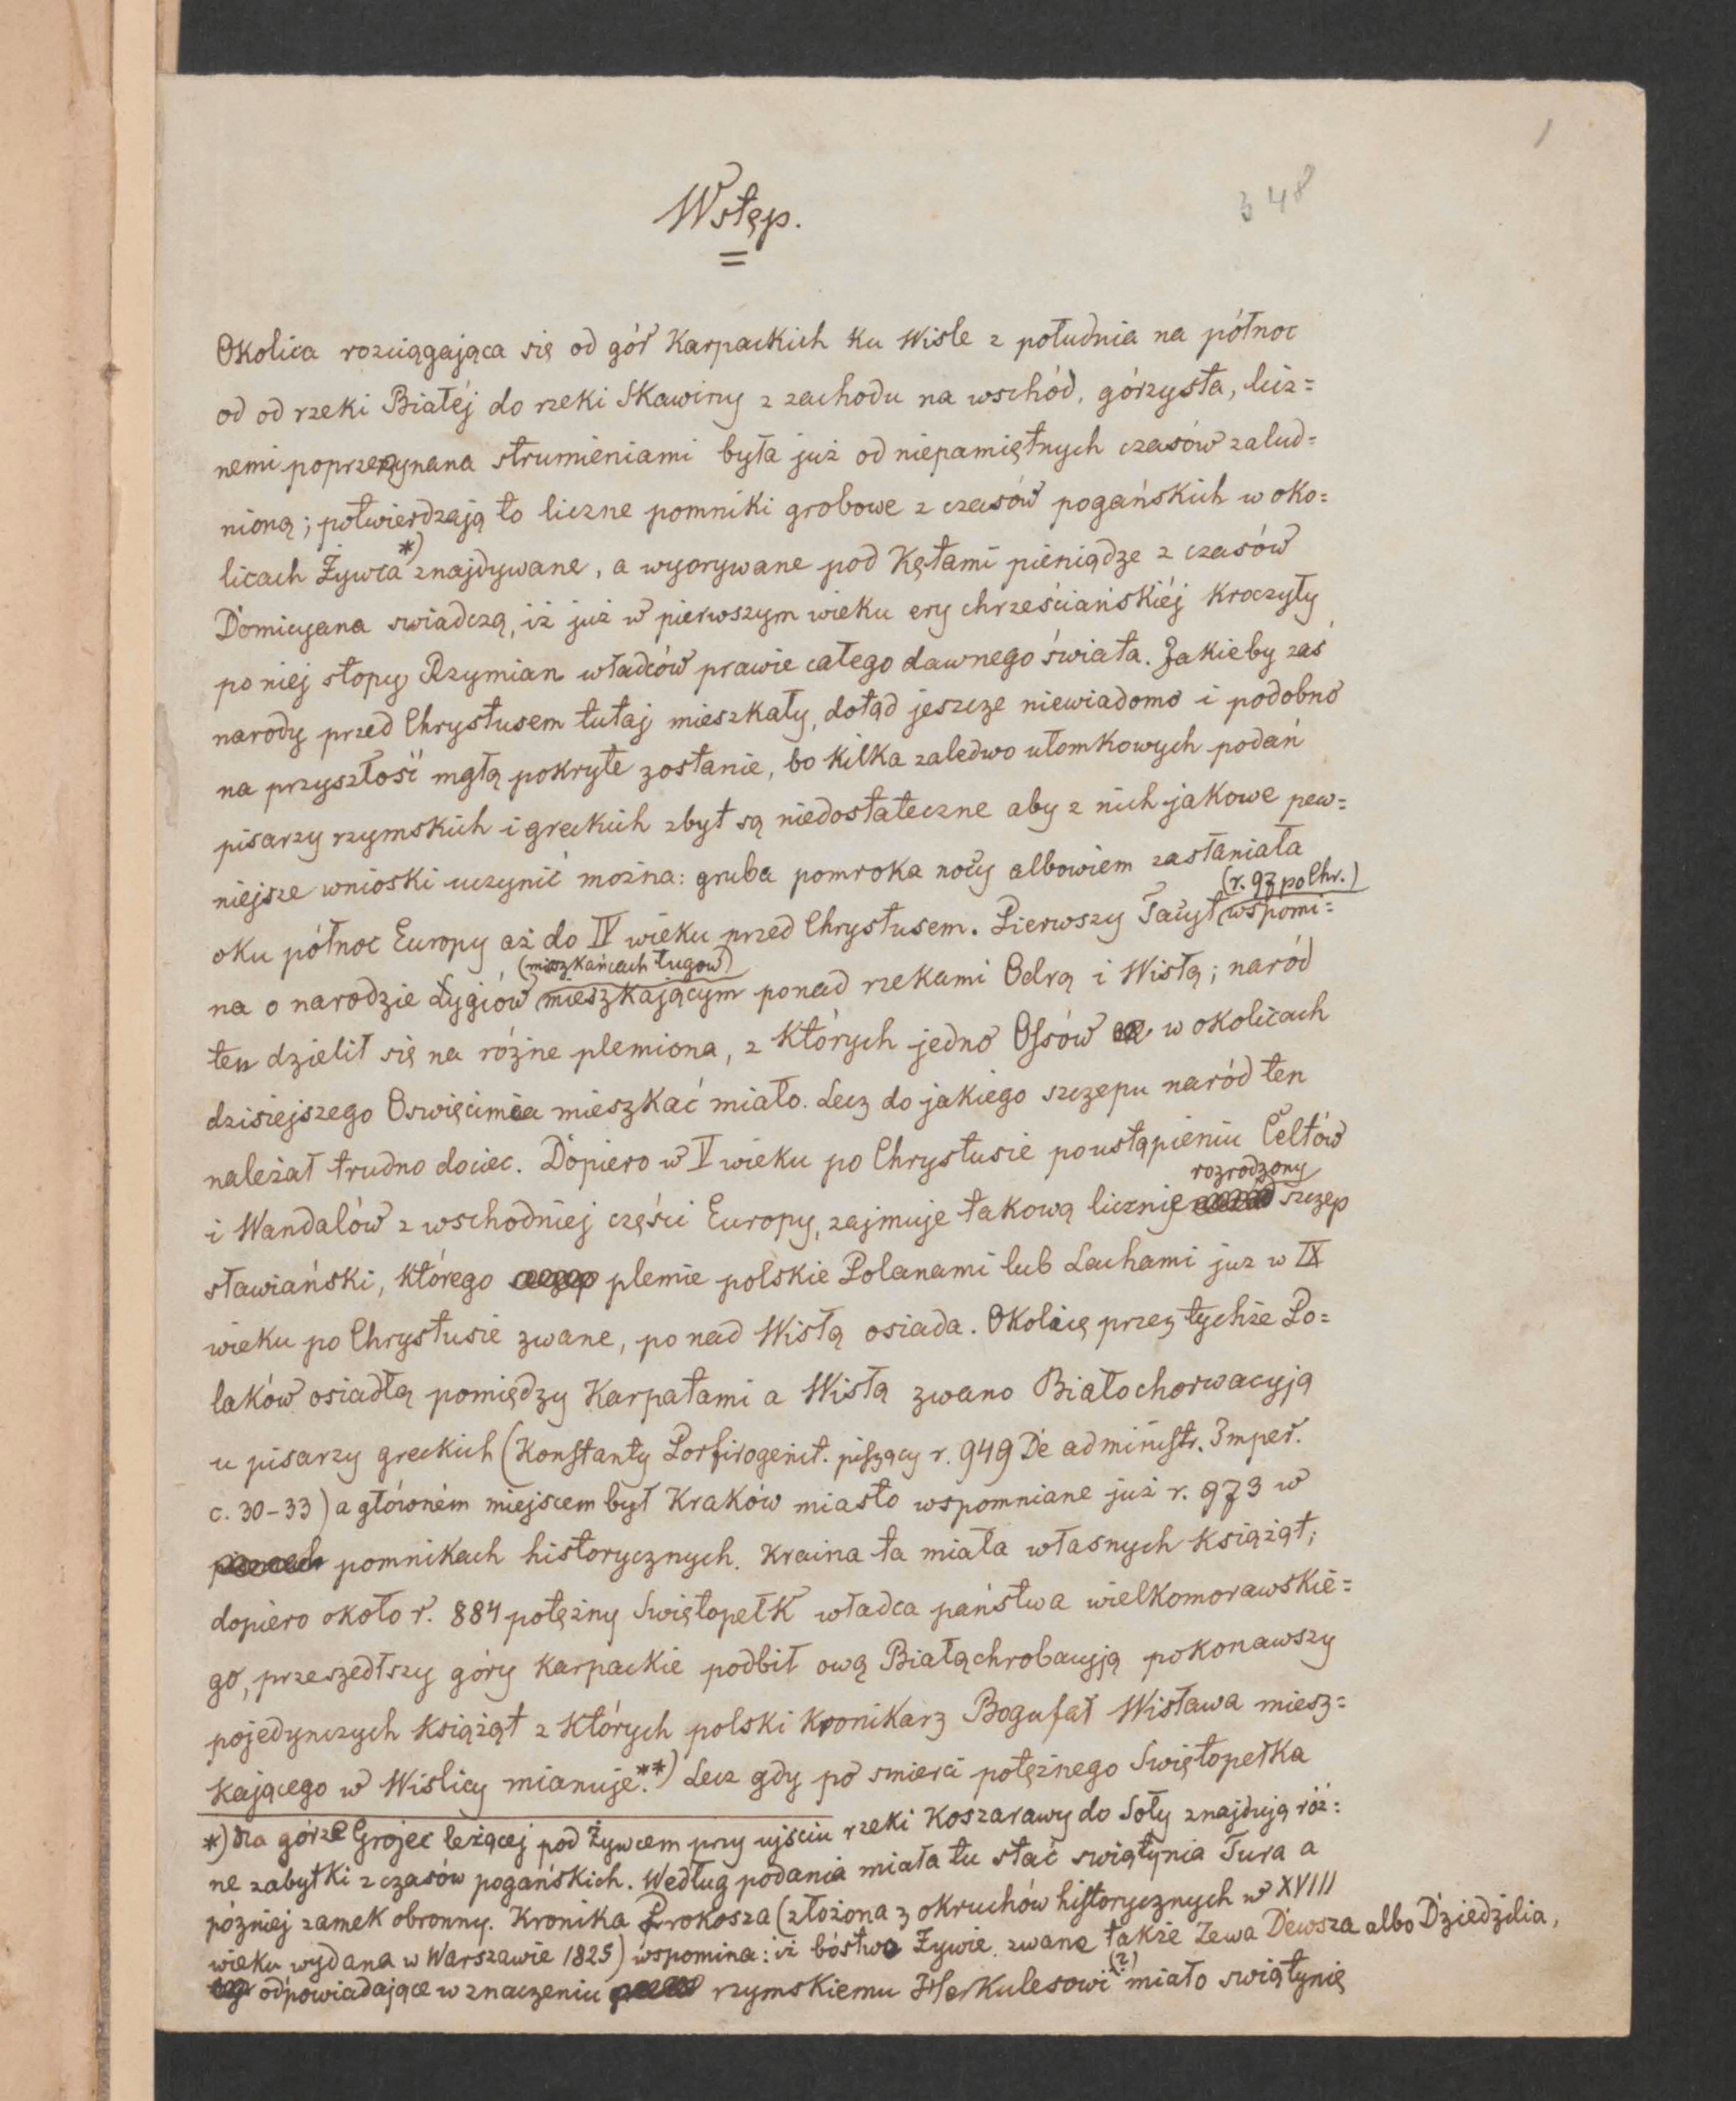 1
348
Wstęp.
Okolica rozciągająca się od gór Karpackich ku Wisle z południa na północ
od od rzeki Białéj do rzeki Skawiny z zachodu na wschód, górzysta, licz=
nemi poprzerzynana strumieniami była już od niepamiętnych czasów zalud=
nioną; potwierdzają to liczne pomniki grobowe z czasów pogańskich w oko=
licach Żywca *) znajdywane, a wyorywane pod Kętami pieniądze z czasów
Domicyana swiadczą, iż już w pierwszym wieku ery chrześciańskiéj kroczyły
po niej stopy Rzymian władców prawie całego dawnego świata. Jakieby zaś
narody przed Chrystusem tutaj mieszkały, dotąd jeszcze niewiadomo i podobno
na przyszłość mgłą pokryte zostanie, bo kilka zaledwo ułomkowych podań
pisarzy rzymskich i greckich zbyt są niedostateczne aby z nich jakowe pew=
niejsze wnioski uczynić można: gruba pomroka nocy albowiem zasłaniała
(r. 97 po Chr.)
oku północ Europy aż do IV wieku przed Chrystusem. Pierwszy Tacyt wspomi=
(mieszkańcach ługow)
na o narodzie Łygiów mieszkającym ponad rzekami Odrą i Wisłą; naród
ten dzielił się na różne plemiona, z których jedno Ossów w okolicach
dzisiejszego Oswięcimia mieszkać miało. Lecz do jakiego szczepu naród ten
należał trudno dociec. Dopiero w V wieku po Chrystusie po ustąpieniu Celtów
rozrodzony
i Wandalów z wschodniej części Europy, zajmuje takową licznie szczep
sławiański, którego plemie polskie Polanami lub Lachami juz w IX
wieku po Chrystusie zwane, ponad Wisłą osiada. Okolicę przez tychże Po=
laków osiadłą pomiędzy Karpatami a Wisłą zwano Białochorwacyją
u pisarzy greckich (Konstanty Porfirogenit. piszący r. 949 De administr. Imper.
c. 30-33) a główném miejscem był Kraków miasto wspomniane już r. 973 w
pomnikach historycznych. Kraina ta miała własnych książąt;
dopiero około r. 884 potężny Swiętopełk władca państwa wielkomorawskie=
go, przeszedłszy góry karpackie podbił ową Białąchrobacyją pokonawszy
pojedynczych książąt z których polski kronikarz Bogufał Wisława miesz=
kającego w Wislicy mianuje.**) Lecz gdy po smierci potężnego Swiętopełka
*) Na górze Grojec leżącej pod Żywcem przy ujściu rzeki Koszarawy do Soły znajdują róż=
ne zabytki z czasów pogańskich. Według podania miała tu stać swiątynia Tura a
pózniej zamek obronny. Kronika Prokosza (złożona z okruchów historycznych w XVIII
wieku wydana w Warszawie 1825) wspomina: iż bóstwo Żywie, zwane także Zewa Dewsza albo Dziedzilia,
odpowiadające w znaczeniu rzymskiemu Herkulesowi (?) miało swiątynię